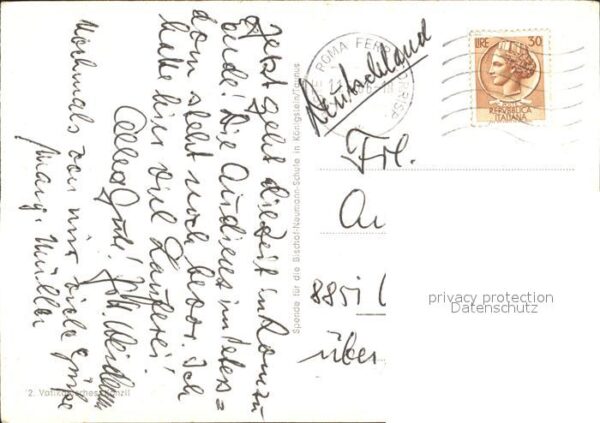 Jetzt geht die Zeit in Rom zu
Ende! Die Audienz im Peters=
dom steht noch bevor. Ich
hatte hier viel Lauferei!
Alles Gute!
Nochmals von mir viele Grüße
Marg. Müller
Spende für die Bischof-Neumann-Schule in Königstein/Taunus
2. Vatikanisches Konzil
ROMA FERR
Deutschland
LIRE 30
REPVBBLICA
ITALIANA
Frl.
8851
über
privacy protection
Datenschutz